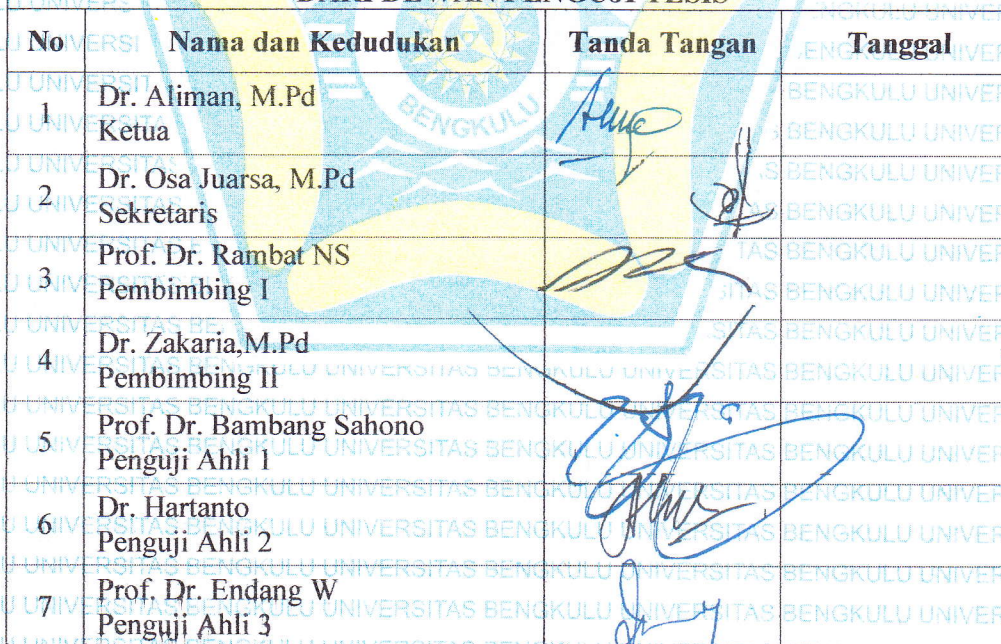 DARI DEWAN PENGUJI TESIS
No Nama dan Kedudukan Tanda Tangan Tanggal
1 Dr. Aliman, M.Pd
Ketua
2 Dr. Osa Juarsa, M.Pd
Sekretaris
3 Prof. Dr. Rambat NS
Pembimbing I
4 Dr. Zakaria,M.Pd
Pembimbing II
5 Prof. Dr. Bambang Sahono
Penguji Ahli 1
6 Dr. Hartanto
Penguji Ahli 2
7 Prof. Dr. Endang W
Penguji Ahli 3
BENGKULU
UNIVERSITAS BENGKULU UNIVERSITAS BENGKULU UNIVERSITAS BENGKULU